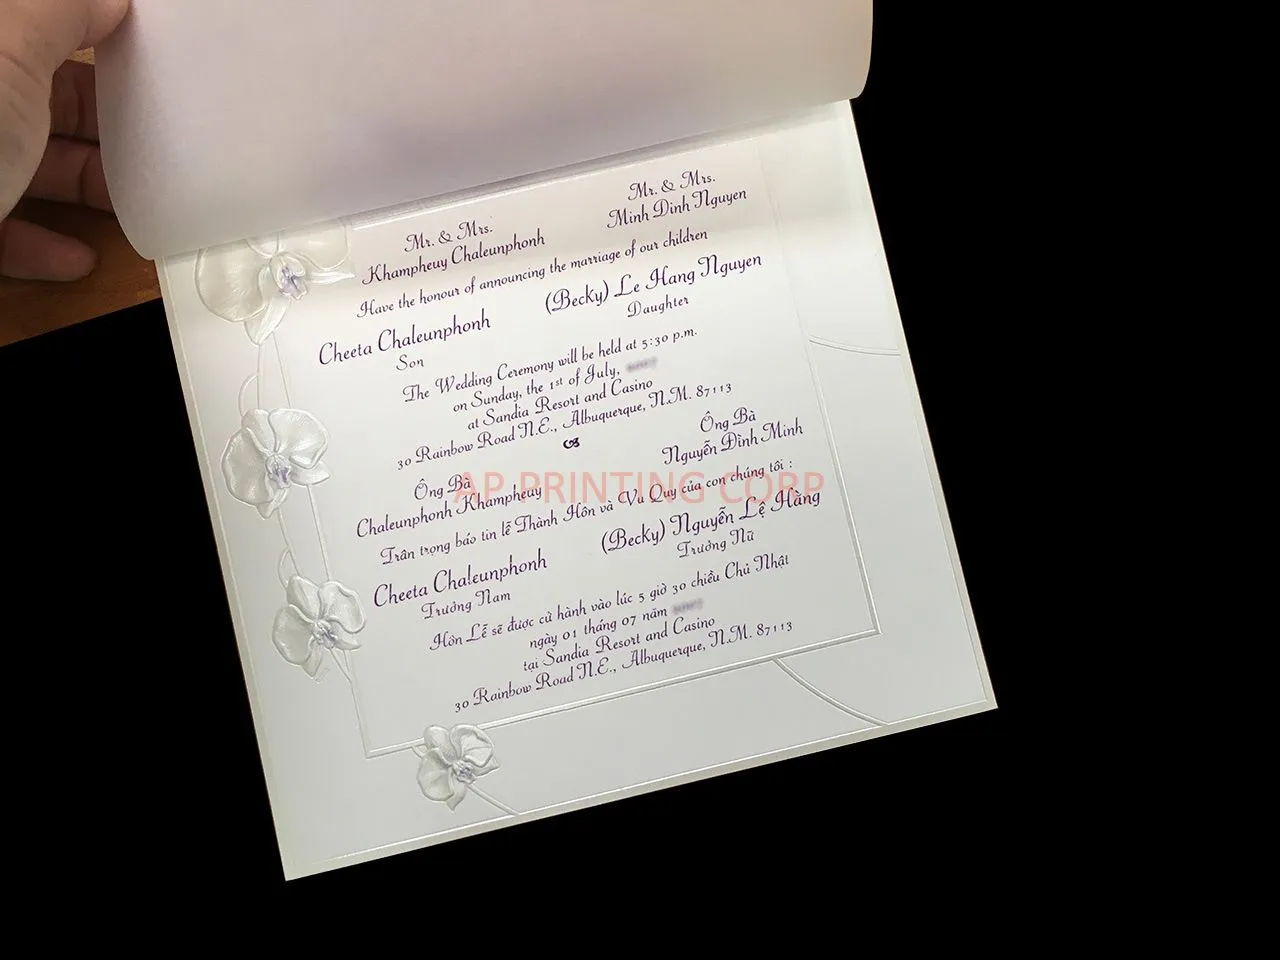 Mr. & Mrs.
Khampheuy Chaleunphonh
Mr. & Mrs.
Minh Dinh Nguyen
Have the honour of announcing the marriage of our children
Cheeta Chaleunphonh
Son
(Becky) Le Hang Nguyen
Daughter
The Wedding Ceremony will be held at 5:30 p.m.
on Sunday, the 1st of July,
at Sandia Resort and Casino
30 Rainbow Road N.E., Albuquerque, N.M. 87113
Ông Bà
Chaleunphonh Khampheuy
Ông Bà
Nguyễn Đình Minh
AP PRINTING CORP
Trân trọng báo tin lễ Thành Hôn và Vu Quy của con chúng tôi :
Cheeta Chaleunphonh
Trưởng Nam
(Becky) Nguyễn Lệ Hằng
Trưởng Nữ
Hôn Lễ sẽ được cử hành vào lúc 5 giờ 30 chiều Chủ Nhật
ngày 01 tháng 07 năm
tại Sandia Resort and Casino
30 Rainbow Road N.E., Albuquerque, N.M. 87113